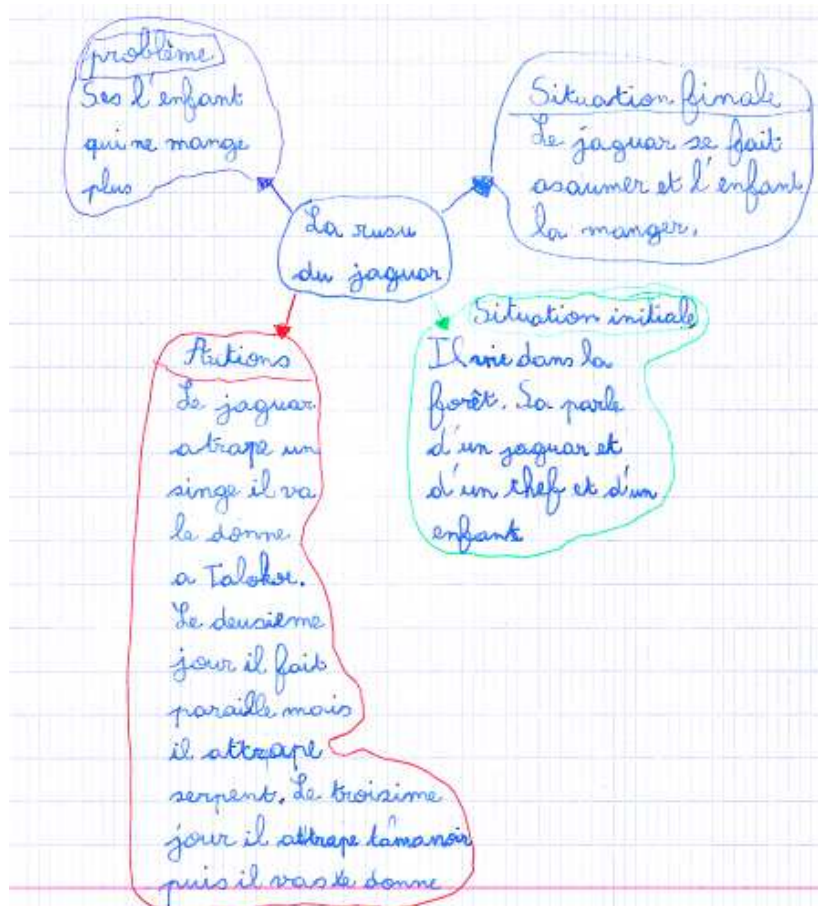 problème
Ses l'enfant
qui ne mange
plus
Situation finale
Le jaguar se fait
asaumer et l'enfant
la manger.
La rusu
du jaguar
Situation initiale
Il vie dans la
forêt. Sa parle
d'un jaguar et
d'un chef et d'un
enfant
Actions
Le jaguar
atrape un
singe il va
le donne
a Talokor.
Le deusième
jour il fait
paraille mais
il attrape
serpent. Le troisime
jour il attrape tamanoir
puis il vas le donne